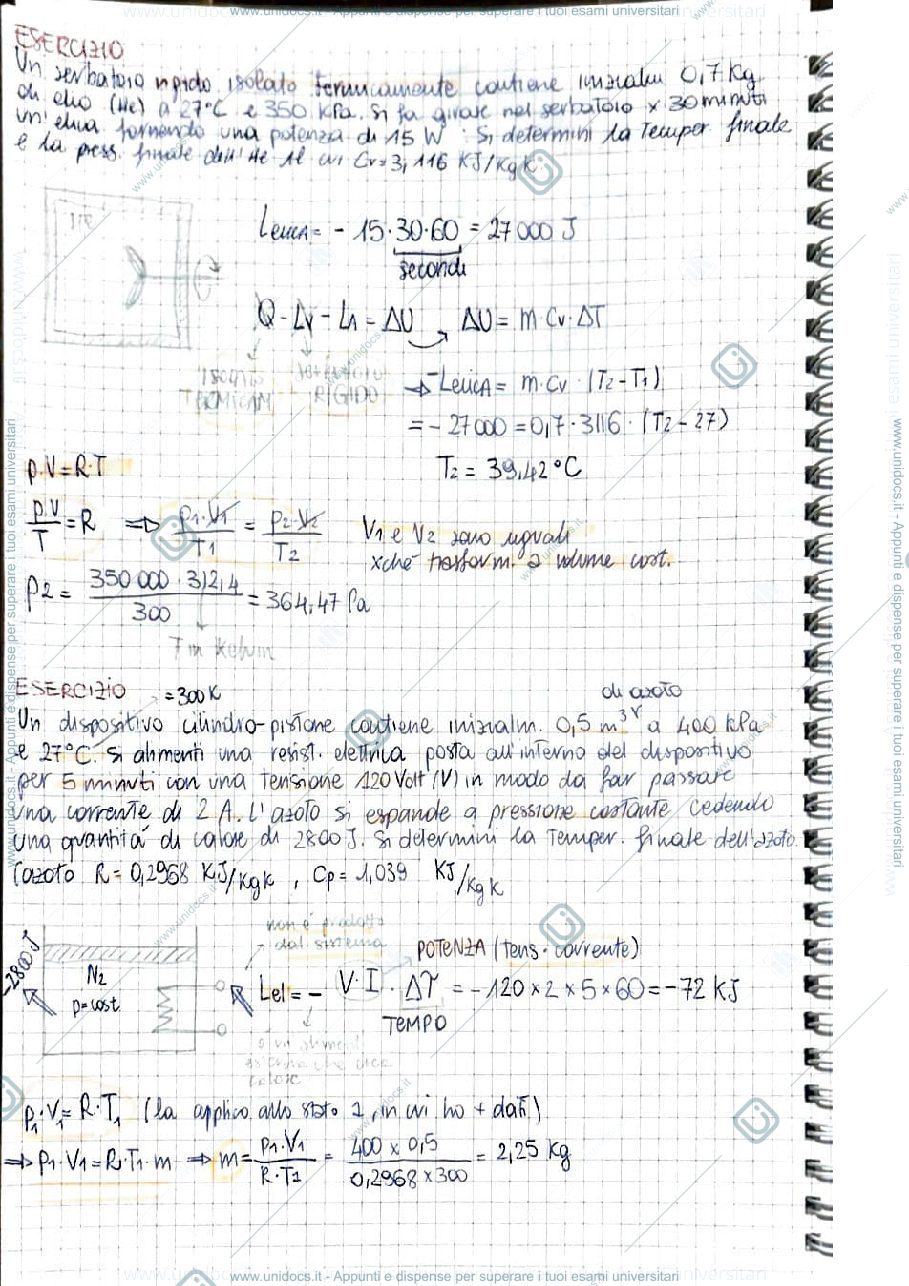 www.unidocs.it - Appunti e dispense per superare i tuoi esami universitari
ESERCIZIO
Un serbatoio rigido isolato termicamente contiene inizialm 0,7 Kg
di elio (He) a 27°C e 350 kPa. Si fa girare nel serbatoio x 30 minuti
un'elica fornendo una potenza di 15 W. Si determini la Temper finale
e la press. finale dell'He il cui Cv=3,116 KJ/Kg K
He
LelicA = - 15·30·60 = 27000 J
secondi
Q - LV - L1 = ΔU ΔU = m·Cv·ΔT
ISOLATO TERMICAM
SERBATOIO RIGIDO
⇒ -LelicA = m·Cv·(T2-T1)
= - 27000 = 0,7·3116·(T2-27)
T2 = 39,42°C
p.V=R·T
p.V/T = R ⇒ p1·V1/T1 = p2·V2/T2
V1 e V2 sono uguali
xché trasform. a volume cost.
p2 = 350 000 · 312,4 / 300 = 364,47 Pa
T in Kelvin
ESERCIZIO =300K di azoto
Un dispositivo cilindro-pistone contiene inizialm. 0,5 m³ a 400 kPa
e 27°C. Si alimenti una resist. elettrica posta all'interno del dispositivo
per 5 minuti con una tensione 120 Volt (V) in modo da far passare
una corrente di 2 A. L'azoto si espande a pressione costante cedendo
una quantità di calore di 2800 J. Si determini la Temper. finale dell'azoto.
(azoto R = 0,2968 KJ/Kg K , Cp = 1,039 KJ/Kg K
-2800 J
N2
p=cost
non è prodotto
dal sistema
POTENZA (tens · corrente)
Lel = - V·I · ΔT = -120×2×5×60 = -72 KJ
TEMPO
calore
p1·V1 = R·T1 (la applico allo stato 1, in cui ho + dati)
⇒ p1·V1 = R·T1·m ⇒ m = p1·V1 / R·T1 = 400 x 0,5 / 0,2968 x 300 = 2,25 Kg
www.unidocs.it - Appunti e dispense per superare i tuoi esami universitari